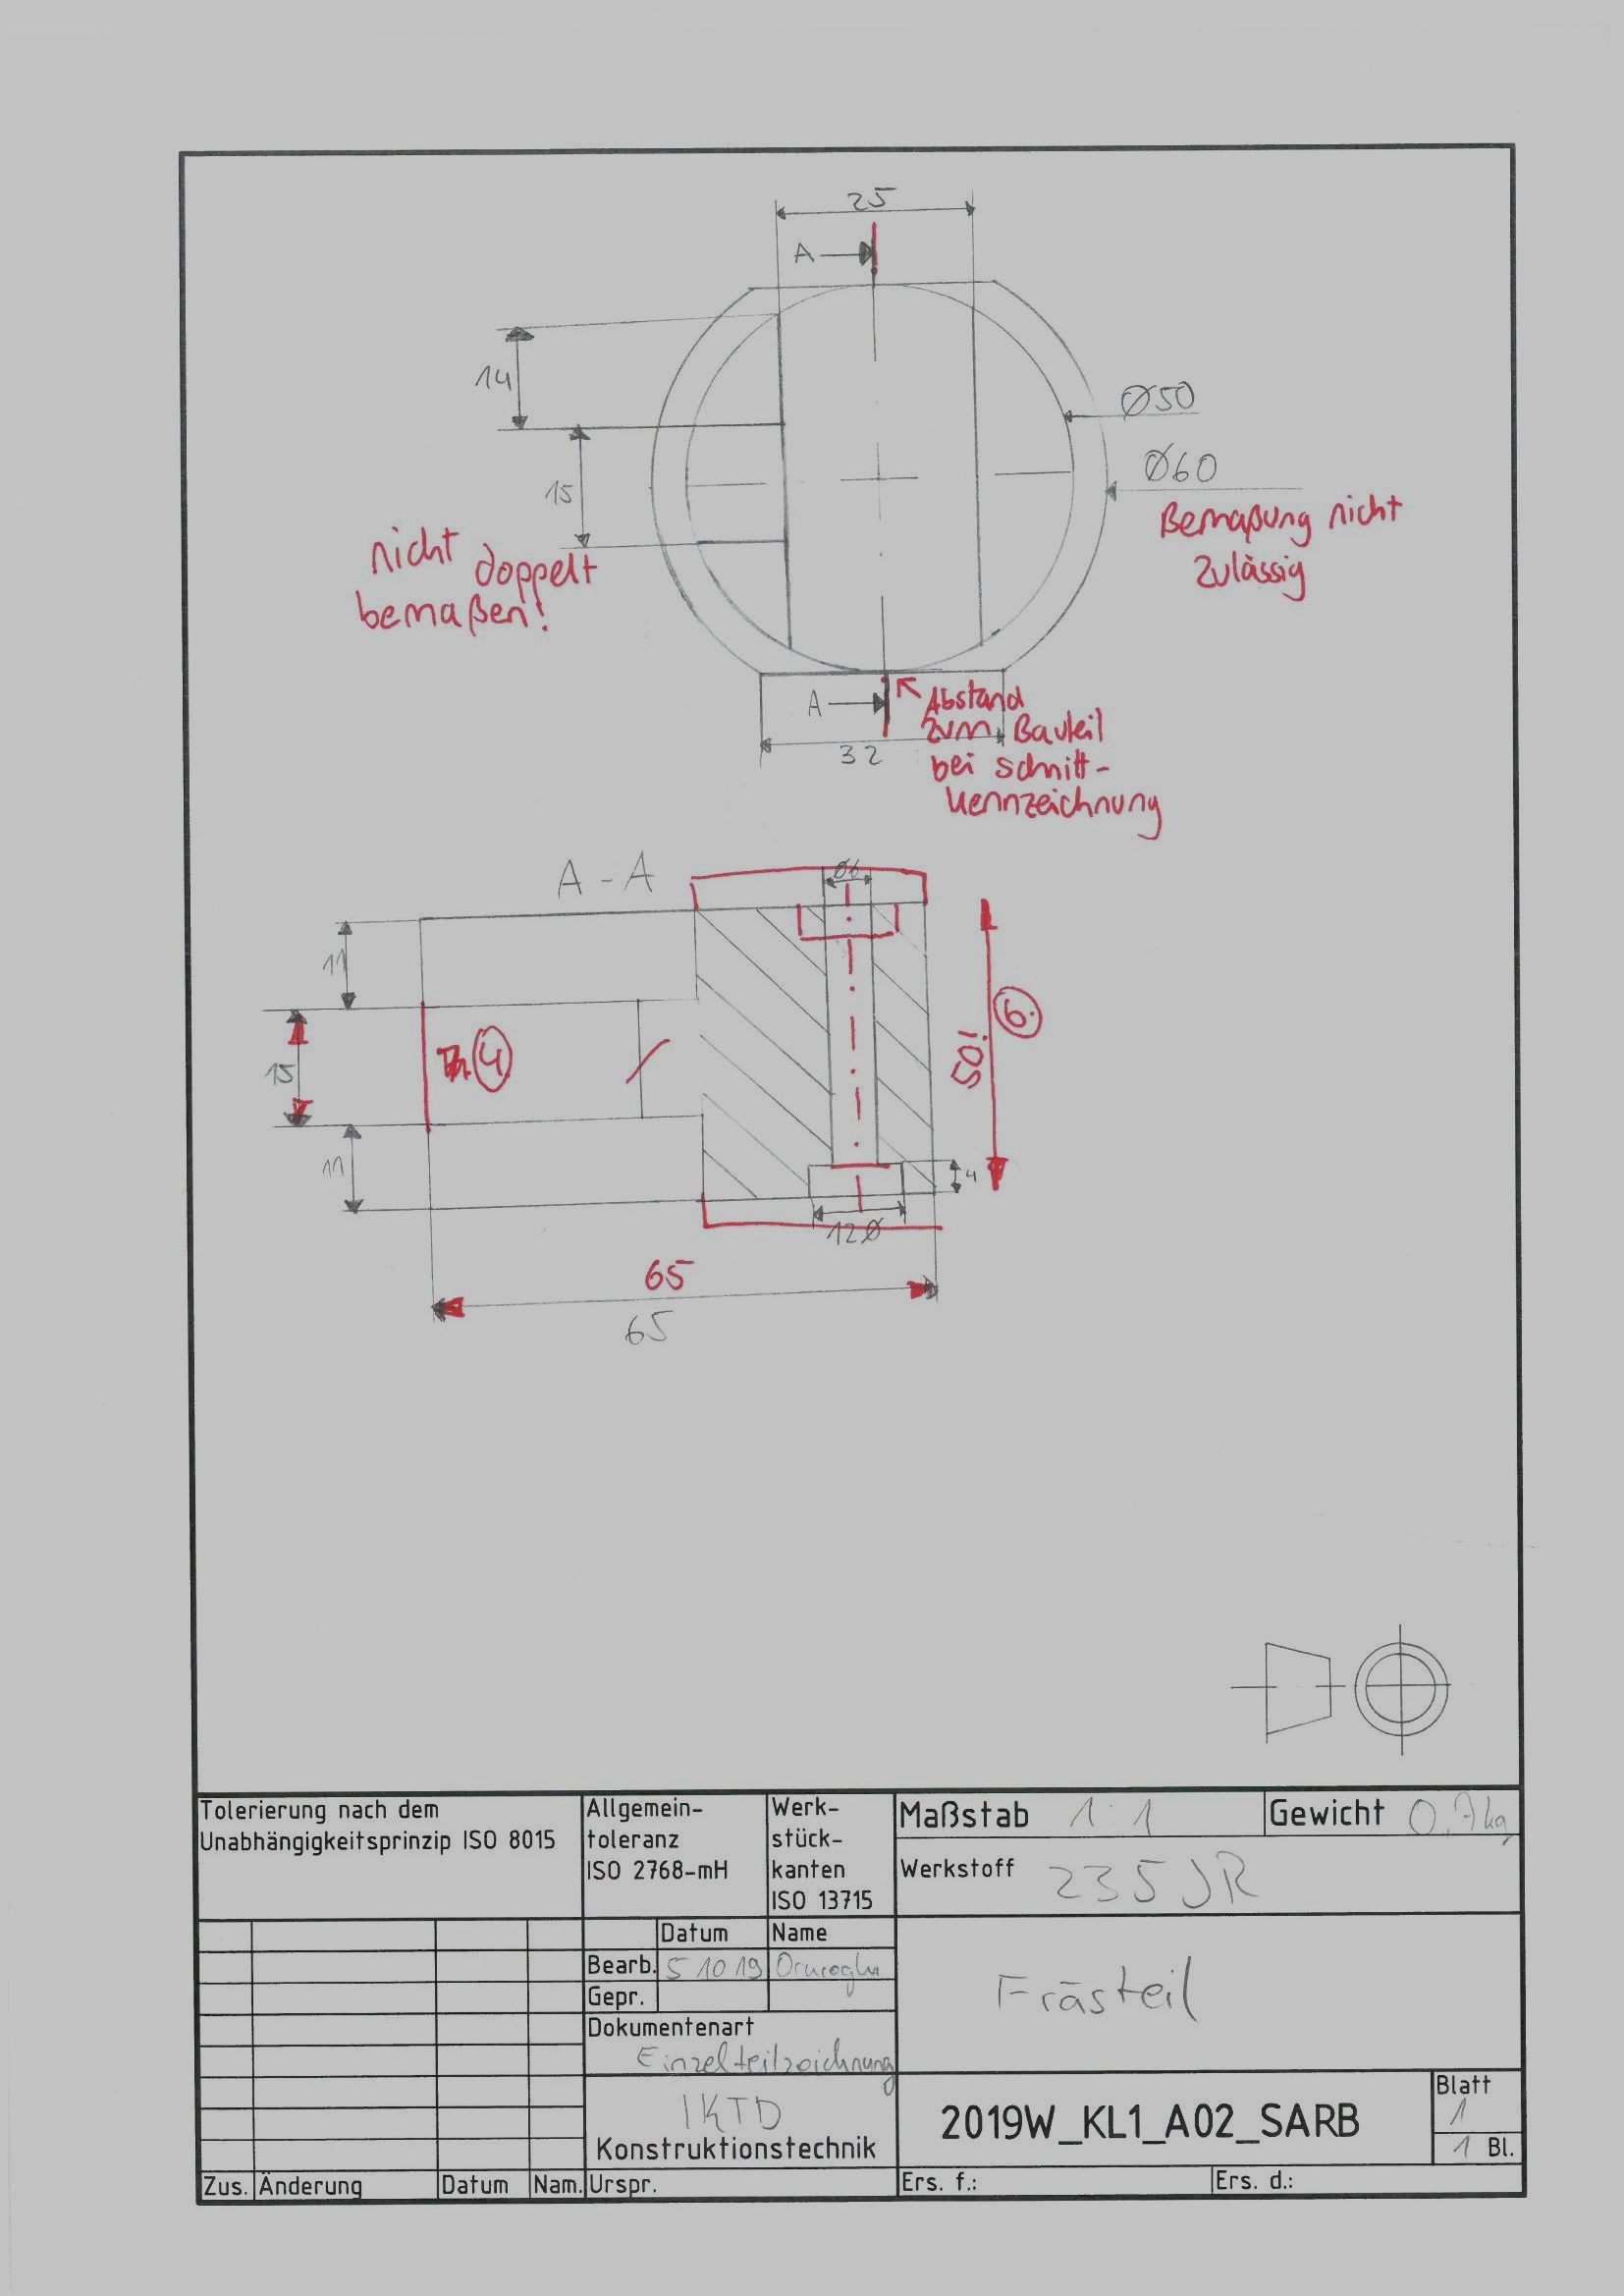 25
A
14
Ø50
Ø60
15
Bemaßung nicht
zulässig
nicht doppelt
bemaßen!
A
Abstand
zum Bauteil
bei schnitt-
kennzeichnung
32
A - A
Ø6
11
6.
4
15
50!
11
4
12Ø
65
65
Tolerierung nach dem
Unabhängigkeitsprinzip ISO 8015
Allgemein-
toleranz
ISO 2768-mH
Werk-
stück-
kanten
ISO 13715
Maßstab 1:1
Gewicht 0,7kg
Werkstoff 235JR
Datum Name
Bearb. 5 10 19
Gepr.
Dokumentenart
Einzelteilzeichnung
Frästeil
IKTD
Konstruktionstechnik
2019W_KL1_A02_SARB
Blatt
1
1 Bl.
Zus. Änderung Datum Nam. Urspr.
Ers. f.: Ers. d.: